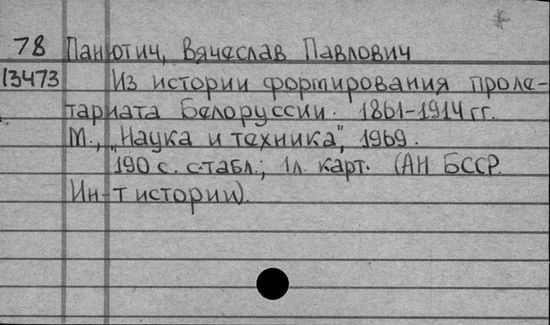 78 Панютич, Вячеслав Павлович
13473 Из истории формирования проле-
тариата Белоруссии. 1861-1914 гг.
М., „Наука и техника", 1969.
190 с. с табл.; 1 л. карт. (АН БССР.
Ин-т истории).